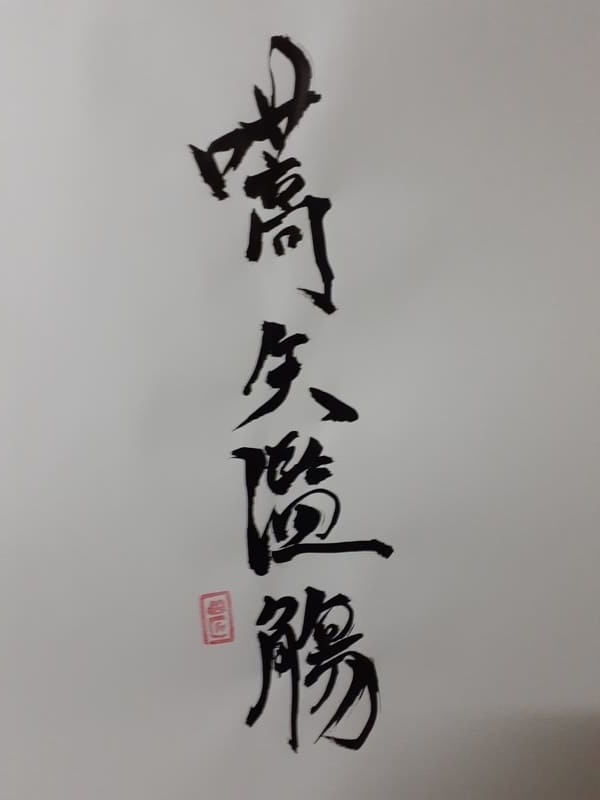 嚆矢濫觴